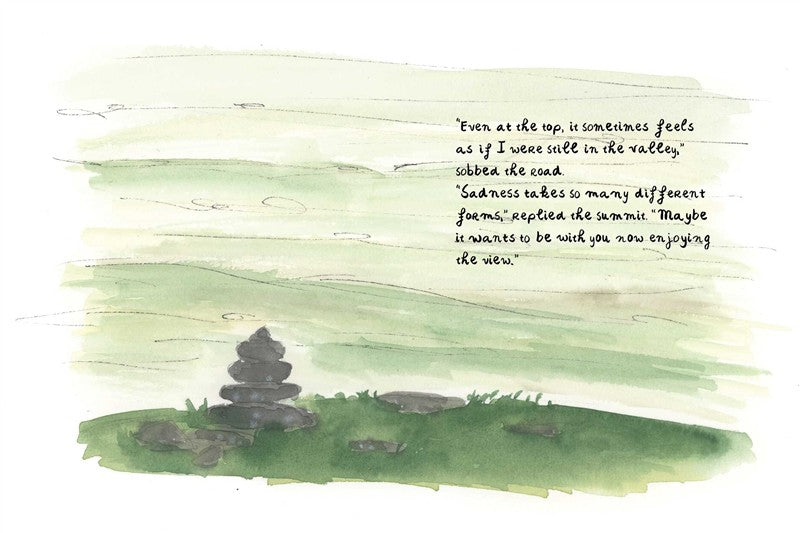 "Even at the top, it sometimes feels
as if I were still in the valley,"
sobbed the road.
"Sadness takes so many different
forms," replied the summit. "Maybe
it wants to be with you now enjoying
the view."